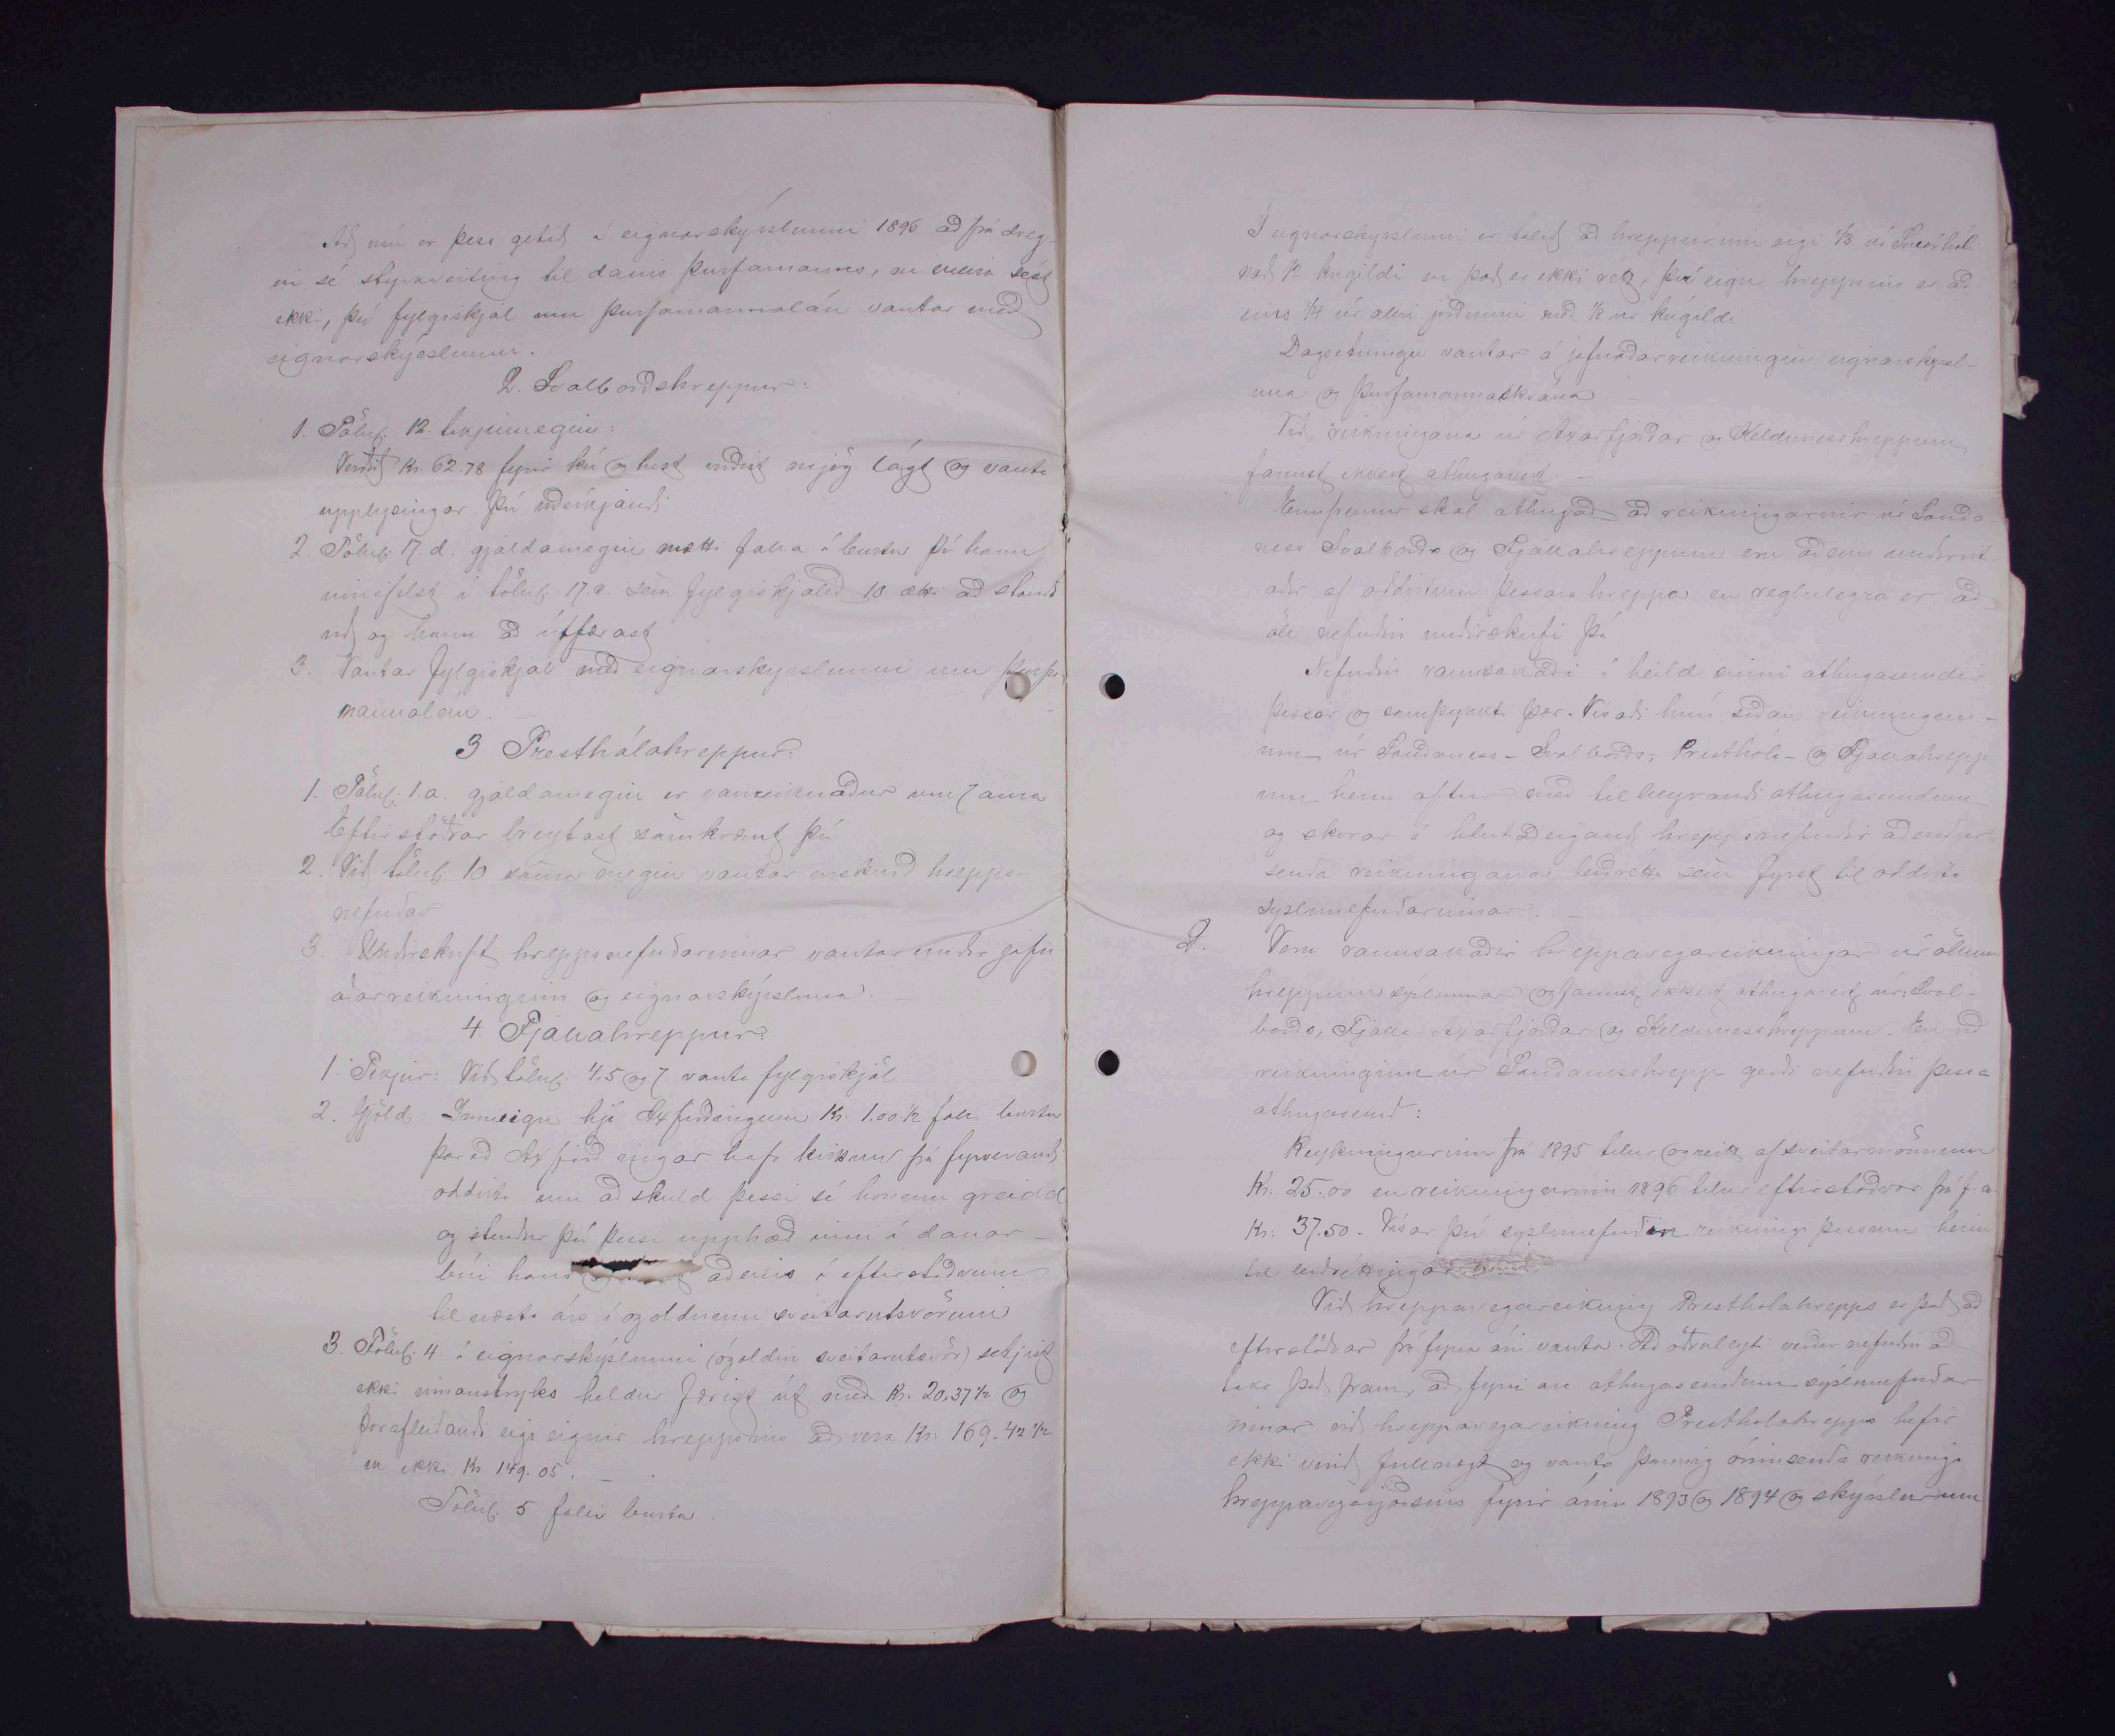 Að vísu er þess getið á eignarskýrslunni 1896 að frá dreg-
in sé styrkveiting til dáins þurfamanns, en sést
ekki, því fylgiskjal um þurfamannalán vantar með
eignarskýrslunni.
2. Svalbarðshreppur:
1. Tölul. 12. tekjumegin:
Verðið Kr. 62.78 fyrir kú og hest virðist mjög lágt og vanta
upplýsingar því viðvíkjandi
2. Tölul. 17. d. gjaldamegin mætti falla í burtu því hann
innifelst í tölul. 17. a. sem fylgiskjalið 10 ætti að standa
við og hann að útfærast
3. Vantar fylgiskjal með eignarskyrslunni um þurfa-
mannalán. —
3 Presthólahreppur:
1. Tölul. 1.a. gjaldamegin er vanreiknaður um 7 aura
Eftirstöðvar breytast samkvæmt því
2. Við tölul. 10 sama megin vantar úrskurð hrepps-
nefndar
3. Undirskrift hreppsnefndarinnar vantar undir jafn
aðarreikninginn og eignarskýrsluna. —
4. Fjallahreppur:
1. Tekjur: Við tölul. 4.5 og 7 vanta fylgiskjöl
2. Gjöld: Inneign hjá Axfirðingum Kr. 1.00 1/2 falli burtu
þar eð Axfirðingar hafa frá fyrverandi
oddvita um að skuld þessi sé honum greidd
og stendur því þessi upphæð inni í dánar-
búi hans aðeins á eftirstöðvum
til næsta árs í ógoldnum sveitarútsvörum
3. Tölul. 4 á eignarskýrslunni (ógoldin sveitarútsvör) setjist
ekki innanstryks heldur færist út með Kr. 20,37 1/2 og
þarafleiðandi eiga eignir hreppsins að vera Kr. 169.42 1/2
en ekki Kr 149.05. —
Tölul. 5 falli burtu.
Í eignarskýrslunni er talið að hreppurinn eigi 1/3 úr Snartastað
með 1/2 kúgildi en það er ekki rétt, því eign hreppsins er að-
eins 1/4 úr allri jörðunni með 1/8 úr kúgildi
Dagsetningu vantar á jafnaðarreikninginn eignarskýrsl-
una og þurfamannaskrána
Við reikningana úr Axarfjarðar og Kelduness hreppum
fannst ekkert athugavert. —
Ennfremur skal athugað að reikningarnir úr Sauða
ness Svalbarðs og Fjallahreppum eru aðeins undirrit
aðir af oddvitum þessara hreppa en reglulegra er að
öll nefndin undirskrifi þá
Nefndin rannsakaði í heild sinni athugasemdir
þessar og samþykkti þær. Vísaði hún síðan reikningun-
um úr Sauðaness- Svalbarðs, Presthóla- og Fjallahrepp
um heim aftur með tilheyrandi athugasemdum
og skorar á hlutaðeigandi hreppsnefndir að endur
senda reikningana leiðrétta sem fyrst til oddvita
sýslunefndarinnar. —
2. Voru rannsakaðir hreppavegareikningar úr öllum
hreppum sýslunnar og fannst ekkert athugavert úr Sval-
barðs, Fjalla Axarfjarðar og Kelduness hreppum. En við
reikninginn úr Sauðanesshrepp gerði nefndin þessa
athugasemd:
Reykningurinn frá 1895 telur ógreitt af sveitarmönnum
Kr. 25.00 en reikningurinn 1896 telur eftirstöðvar frá f. a.
Kr. 37.50. Vísar því sýslunefndin reikningi þessum heim
til leiðréttingar
Við hreppavegareikning Presthólahrepps er það að
eftirstöðvar frá fyrra ári vanta. Að öðruleyti verður nefndin að
taka það fram, að fyrri ára athugasemdum sýslunefndar
innar við hreppavegareikning Presthólahrepps hefir
ekki verið fullnægt og vanta þannig óinnsenda reikninga
hreppavegasjóðsins fyrir árin 1893 og 1894 og skýrslur um